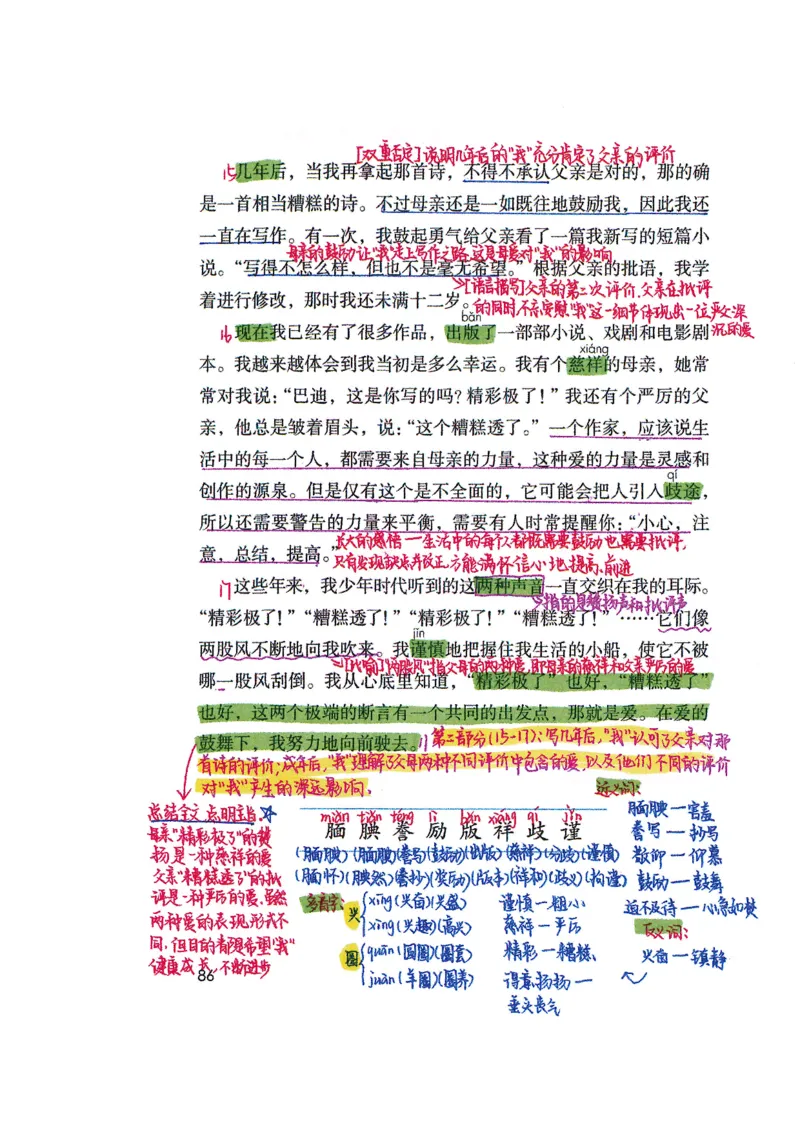 [双重否定]说明几年后的“我”充分肯定了父亲的评价
15几年后，当我再拿起那首诗，不得不承认父亲是对的，那的确
是一首相当糟糕的诗。不过母亲还是一如既往地鼓励我，因此我还
一直在写作。有一次，我鼓起勇气给父亲看了一篇我新写的短篇小
母亲的鼓励让“我”走上写作之路，这是母爱对“我”的影响
说。“写得不怎么样，但也不是毫无希望。”根据父亲的批语，我学
[语言描写]父亲的第二次评价，父亲在批评
着进行修改，那时我还未满十二岁。
的同时不忘安慰“我”这一细节体现出一位严父深
沉的爱
bǎn
16现在我已经有了很多作品，出版了一部部小说、戏剧和电影剧
xiáng
本。我越来越体会到我当初是多么幸运。我有个慈祥的母亲，她常
常对我说：“巴迪，这是你写的吗？精彩极了！”我还有个严厉的父
亲，他总是皱着眉头，说：“这个糟糕透了。”一个作家，应该说生
活中的每一个人，都需要来自母亲的力量，这种爱的力量是灵感和
qí
创作的源泉。但是仅有这个是不全面的，它可能会把人引入歧途，
所以还需要警告的力量来平衡，需要有人时常提醒你：“小心，注
意，总结，提高。”
长大的感悟—生活中的每个人都既需要鼓励也需要批评，
只有发现缺点并改正，方能满怀信心地提高、前进
17这些年来，我少年时代听到的这两种声音一直交织在我的耳际。
指的是赞扬声和批评声
“精彩极了！”“糟糕透了！”“精彩极了！”“糟糕透了！”……它们像
jǐn
两股风不断地向我吹来。我谨慎地把握住我生活的小船，使它不被
[比喻]“两股风”指父母的两种爱，即母亲的慈祥和父亲严厉的爱
哪一股风刮倒。我从心底里知道，“精彩极了”也好，“糟糕透了”
也好，这两个极端的断言有一个共同的出发点，那就是爱。在爱的
鼓舞下，我努力地向前驶去。
第二部分(15-17)：写几年后，“我”认可了父亲对那
首诗的评价；成年后，“我”理解了父母两种不同评价中包含的爱，以及他们不同的评价
对“我”产生的深远影响。
总结全文 点明主旨
母亲“精彩极了”的赞
扬是一种慈祥的爱
父亲“糟糕透了”的批
评是一种严厉的爱，虽然
两种爱的表现形式不
同，但目的都是希望“我”
健康成长，不断进步
86
miǎn tiǎn téng lì bǎn xiáng qí jǐn
腼 腆 誊 励 版 祥 歧 谨
(腼腆)(腼腆)(誊写)(鼓励)(出版)(慈祥)(分歧)(谨慎)
(腼怀)(腆然)(誊抄)(奖励)(版本)(祥和)(歧义)(拘谨)
多音字：
兴
xīng(兴奋)(兴盛)
xìng(兴趣)(高兴)
圈
quān(圆圈)(圈套)
juàn(羊圈)(圈养)
谨慎—粗心
慈祥—严厉
精彩—糟糕
得意扬扬—
垂头丧气
近义词：
腼腆—害羞
誊写—抄写
敬仰—仰慕
鼓励—鼓舞
迫不及待—心急如焚
反义词：
兴奋—镇静